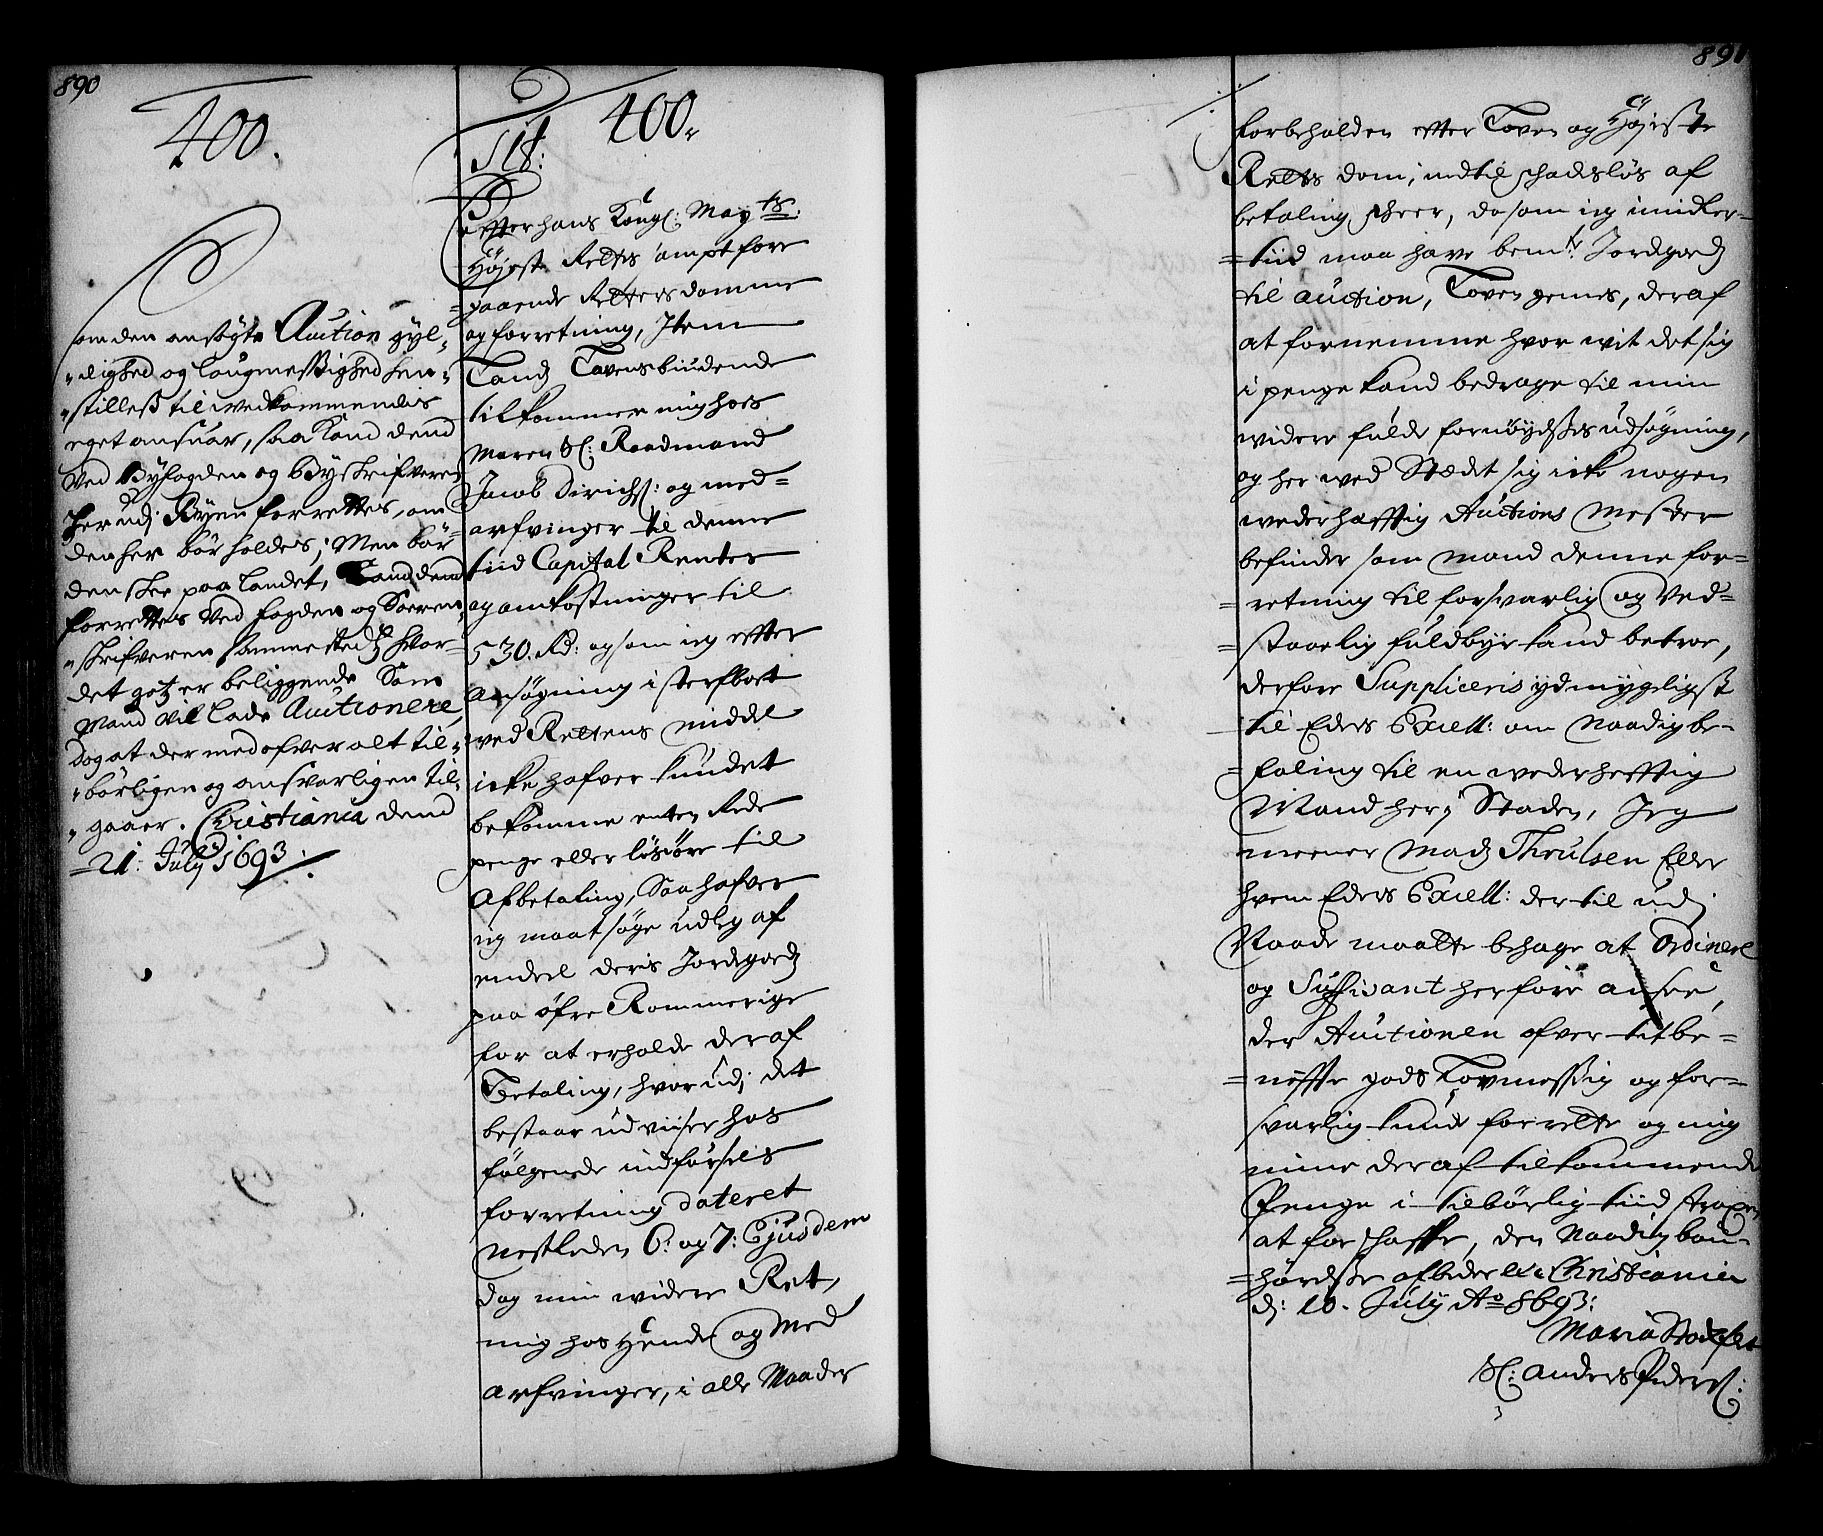 890
400.
om den ansøgte Auction gyl-
dighed og laugmessighed hen-
stilless til wedkommendis
eget ansuar, saa kand dend
Ved Byfogden og Byskrifveren
her udj Byen forrettes, om
den her bør holdes; Men bør
den skee paa Landet, kand dend
forrettes Ved fogden og Soren-
skrifveren sammestedz hvor
det gotz er beliggende Som
Mand vil lade Auctionere,
dog at der med ofver alt til-
børligen og ansvarligen til-
gaaer. Christiania dend
21: July 1693.
400.
S: H:
Efter hans Kongl: Mayts:
Højeste Rettis samptfore
gaaende Retters domme
og forretning, Item
Landz Lovens biudende
tilkommer mig hoes
Maren Sl: Raadmand
Jacob Dirichs: og med-
arfvinger til denne
tiid Capital Renter
og omkostninger til
530. Rd: og som ieg efter
Ansøgning i sterfboet
ved Rettens middel
icke hafver kundet
bekomme enten Rede
penge eller løsøre til
Afbetaling, Saa hafver
ieg maat søge udleg af
endeel deris Jordegodz
paa øfre Rommerige
for at erholde der af
Betaling, hvor udj det
bestaar udviiser hos
følgende indførsels
forretning dateret
Nestleden 6: og 7: Ejusdem
dog min widere Ret,
mig hos Hende og Med
arfvinger, i alle Maader
891
forbeholden efter Loven og Højeste
Retts dom, indtil schadesløs af
betaling scheer, da som ieg imidler-
tiid maa have bemte: Jordegodz
til auction, Loven gemes, deraf
at fornemme hvor wit det sig
i penge kand bedrage til min
widere fulde fornøydses udsøgning,
og her wed Stædet sig icke nogen
wederhefftig Auctions Mester
befinder som mand denne for-
retning til forsvarlig og Ved-
staaelig fuldbyr kand betroe,
derfore Suppliceris ydmygeligst
til Eders Excell: om Naadig be-
faling til en wederhefftig
Mand her i Staden, Jeg
meener Madz Thrulsen Eller
hvem Eders Excell: der til udj
Naade maatte behage at Ordinere
og Suffisant herfore ansee,
der Auctionen ofver titbe-
neffte gods Lovmessig og for-
svarlig kunde forrette og mig
mine der af tilkommende
Penge i tilbørlig tiid straxen
at forschaffe, den Naadig bøn-
hørelse afbeder etc. Christiania
d: 10. July Ao 1693:
Maria Stockflet
Sl: Anders Peders: